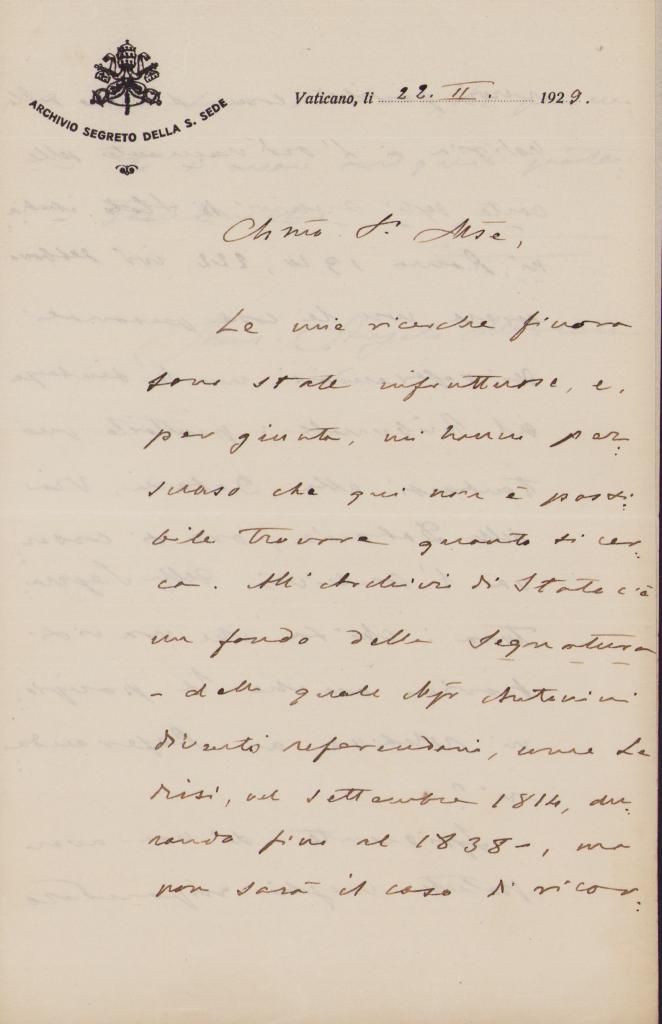 ARCHIVIO SEGRETO DELLA S. SEDE
Vaticano, li 22. II. 1929.
Chmo Sr. Mse,
Le mie ricerche finora
sono state infruttuose, e,
per giunta, mi hanno per:
suaso che qui non è possi:
bile trovare quanto si cer:
ca. All'Archivio di Stato c'è
un fondo della Segnatura
- della quale Mgr Antonini
diventò referendario, come Le
dissi, nel settembre 1814, du:
rando fino al 1838 -, ma
non sarà il caso di ricor: